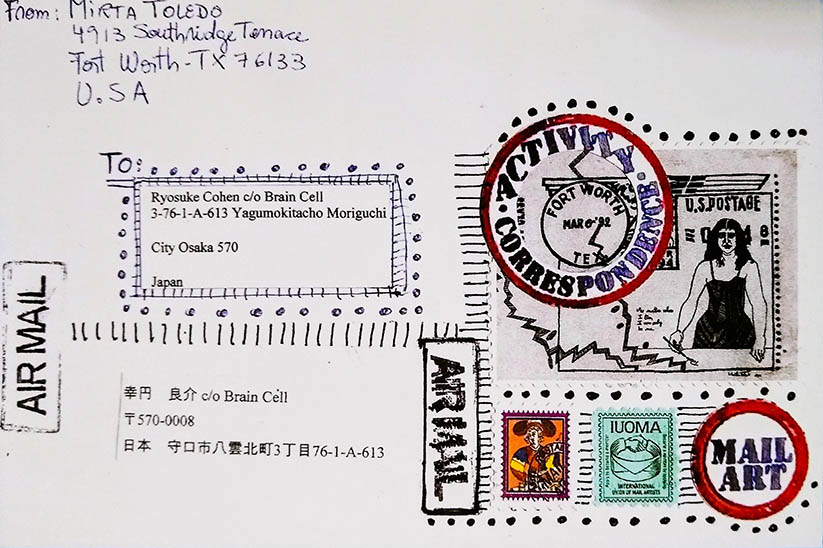 From: MIRTA TOLEDO
4913 Southridge Terrace
Fort Worth - TX 76133
U.SA
To:
Ryosuke Cohen c/o Brain Cell
3-76-1-A-613 Yagumokitacho Moriguchi
City Osaka 570
Japan
AIR MAIL
幸円 良介 c/o Brain Cell
〒570-0008
日本 守口市八雲北町3丁目76-1-A-613
ACTIVITY
CORRESPONDENCE
FORT WORTH
MAR 6 '92
TEX
U.S. POSTAGE
No matter who
I am,
I can only
be me.
AIR MAIL
IUOMA
INTERNATIONAL
UNION OF MAIL ARTISTS
MAIL
ART